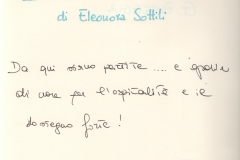 di Eleonora Sottili
Da qui siamo partite .... e grazie
di cuore per l'ospitalità e il
sostegno forte!